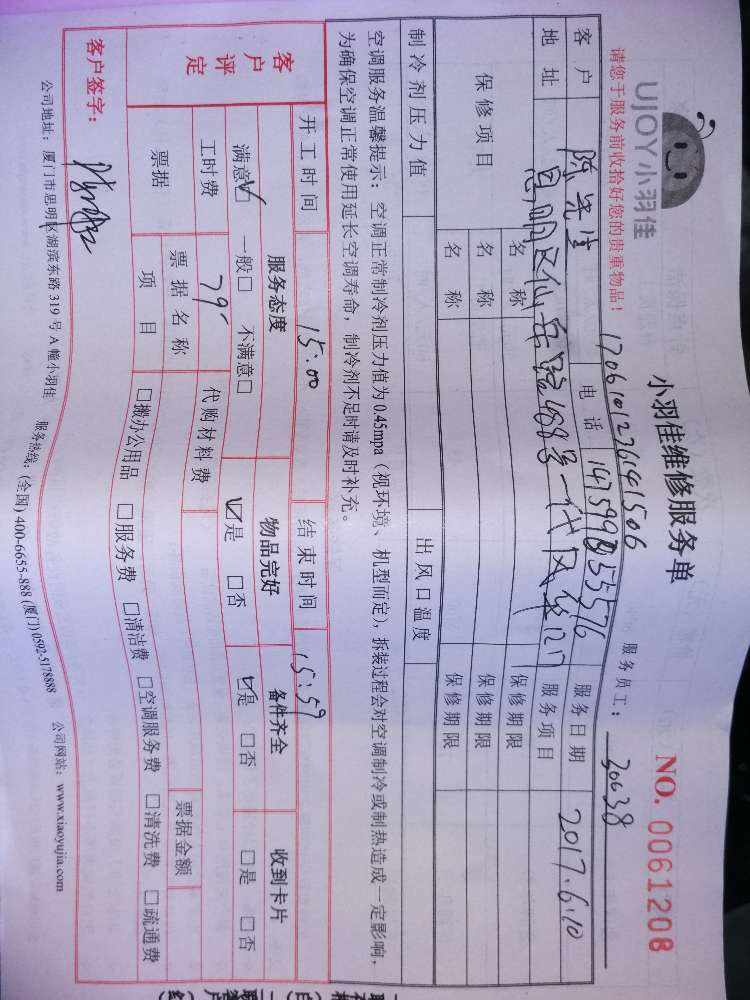 UJOY小羽佳
小羽佳维修服务单
NO. 0061208
1706101276141506
请您于服务前收拾好您的贵重物品！
服务员工： 30638
客户 陈先生 电话 服务日期 2017.6.10
地址 思明区仙岳路488号一代风华 服务项目
保修项目 名称 保修期限
名称 保修期限
名称 保修期限
制冷剂压力值 出风口温度
空调服务温馨提示：空调正常制冷剂压力值为0.45mpa（视环境、机型而定），拆装过程会对空调制冷或制热造成一定影响，
为确保空调正常使用延长空调寿命，制冷剂不足时请及时补充。
开工时间 15:00 结束时间 15:59
客户评定 服务态度 物品完好 备件齐全 收到卡片
满意☑ 一般□ 不满意□ ☑是 □否 ☑是 □否 □是 □否
工时费 79- 代购材料费
票据 票据名称 票据金额
项目 □搬办公用品 □服务费 □清洁费 □空调服务费 □清洗费 □疏通费
客户签字：
公司地址：厦门市思明区湖滨东路319号A幢小羽佳 服务热线：(全国) 400-6655-888 (厦门) 0592-5178888 公司网站：www.xiaoyujia.com